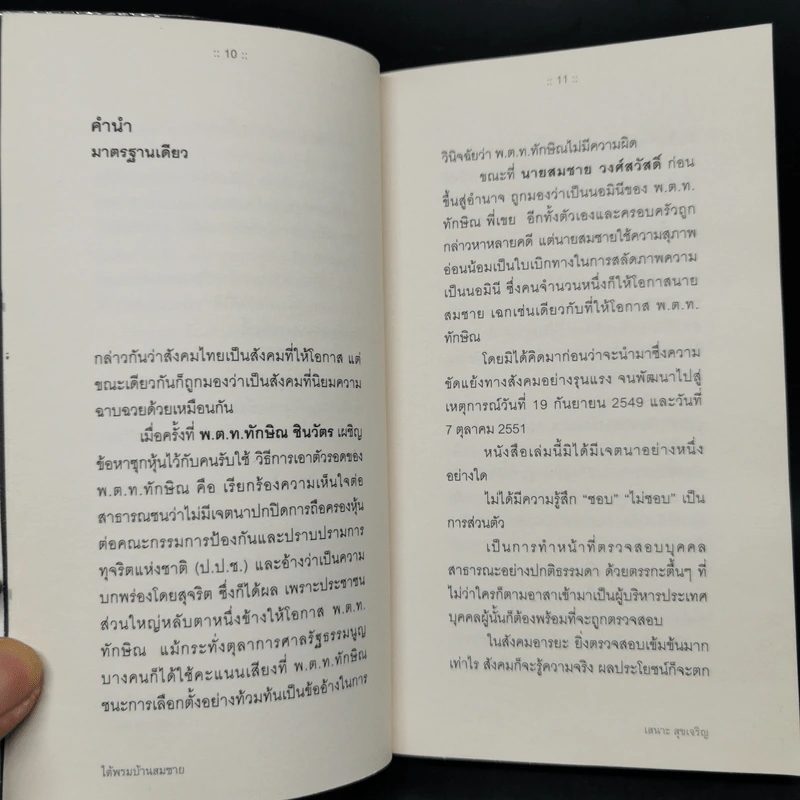 :: 10 ::
คำนำ
มาตรฐานเดียว
กล่าวกันว่าสังคมไทยเป็นสังคมที่ให้โอกาส แต่
ขณะเดียวกันก็ถูกมองว่าเป็นสังคมที่นิยมความ
ฉาบฉวยด้วยเหมือนกัน
เมื่อครั้งที่ พ.ต.ท.ทักษิณ ชินวัตร เผชิญ
ข้อหาซุกหุ้นไว้กับคนรับใช้ วิธีการเอาตัวรอดของ
พ.ต.ท.ทักษิณ คือ เรียกร้องความเห็นใจต่อ
สาธารณชนว่าไม่มีเจตนาปกปิดการถือครองหุ้น
ต่อคณะกรรมการป้องกันและปราบปรามการ
ทุจริตแห่งชาติ (ป.ป.ช.) และอ้างว่าเป็นความ
บกพร่องโดยสุจริต ซึ่งก็ได้ผล เพราะประชาชน
ส่วนใหญ่หลับตาหนึ่งข้างให้โอกาส พ.ต.ท.
ทักษิณ แม้กระทั่งตุลาการศาลรัฐธรรมนูญ
บางคนก็ได้ใช้คะแนนเสียงที่ พ.ต.ท.ทักษิณ
ชนะการเลือกตั้งอย่างท้วมท้นเป็นข้ออ้างในการ
ใต้พรมบ้านสมชาย
:: 11 ::
วินิจฉัยว่า พ.ต.ท.ทักษิณไม่มีความผิด
ขณะที่ นายสมชาย วงศ์สวัสดิ์ ก่อน
ขึ้นสู่อำนาจ ถูกมองว่าเป็นนอมินีของ พ.ต.ท.
ทักษิณ พี่เขย อีกทั้งตัวเองและครอบครัวถูก
กล่าวหาหลายคดี แต่นายสมชายใช้ความสุภาพ
อ่อนน้อมเป็นใบเบิกทางในการสลัดภาพความ
เป็นนอมินี ซึ่งคนจำนวนหนึ่งก็ให้โอกาสนาย
สมชาย เฉกเช่นเดียวกับที่ให้โอกาส พ.ต.ท.
ทักษิณ
โดยมิได้คิดมาก่อนว่าจะนำมาซึ่งความ
ขัดแย้งทางสังคมอย่างรุนแรง จนพัฒนาไปสู่
เหตุการณ์วันที่ 19 กันยายน 2549 และวันที่
7 ตุลาคม 2551
หนังสือเล่มนี้มิได้มีเจตนาอย่างหนึ่ง
อย่างใด
ไม่ได้มีความรู้สึก “ชอบ” “ไม่ชอบ” เป็น
การส่วนตัว
เป็นการทำหน้าที่ตรวจสอบบุคคล
สาธารณะอย่างปกติธรรมดา ด้วยตรรกะตื้นๆ ที่
ไม่ว่าใครก็ตามอาสาเข้ามาเป็นผู้บริหารประเทศ
บุคคลผู้นั้นก็ต้องพร้อมที่จะถูกตรวจสอบ
ในสังคมอารยะ ยิ่งตรวจสอบเข้มข้นมาก
เท่าไร สังคมก็จะรู้ความจริง ผลประโยชน์ก็จะตก
เสนาะ สุขเจริญ